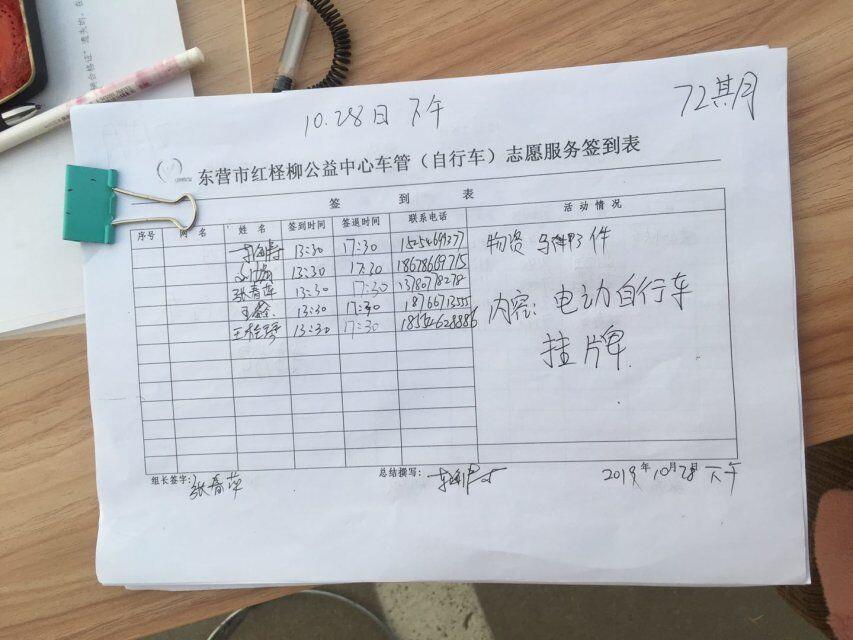 10.28日 下午
72期
东营市红柽柳公益中心车管（自行车）志愿服务签到表
签 到 表
活动情况
序号 网名 姓名 签到时间 签退时间 联系电话
13:30 17:30
13:30 17:30 18678669715
张春萍 13:30 17:30 13780778278
王鑫 13:30 17:30 18766713555
13:30 17:30 18554628886
物资 马甲3件
内容: 电动自行车
挂牌
组长签字: 张春萍
总结撰写:
2019年10月28日 下午